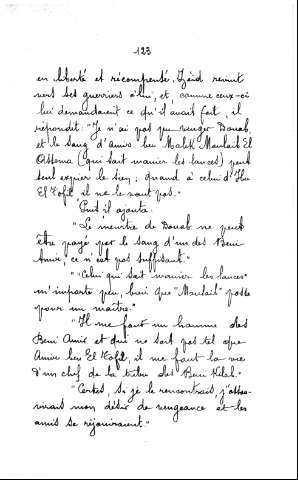 123
en liberté et récompensé. Zéïd revint
vers ses guerriers à lui, et, comme ceux-ci
lui demandaient ce qu'il avait fait, il
répondit: "Je n'ai pas pu venger Douab,
et le sang d'Amrs ben Malek Maulaïl El
Assema (qui sait manier les lances) peut
seul expier le sien; quand à celui d'Ibn
El Tofil il ne le vaut pas."
Puis il ajouta
"Le meurtre de Douab ne peut
être payé par le sang d'un des Beni
Amir, ce n'est pas suffisant."
"Celui qui sait manier les lances"
m'importe peu, bien que "Maulaïl" passe
pour un maître."
"Il me faut un homme des
Beni Amir et qui ne soit pas tel que
Amirs ben El Tofil, il me faut la vie
d'un chef de la tribu des Beni Kilab."
"Certes, si je le rencontrais, j'assou-
virais mon désir de vengeance et les
amis se réjouiraient."